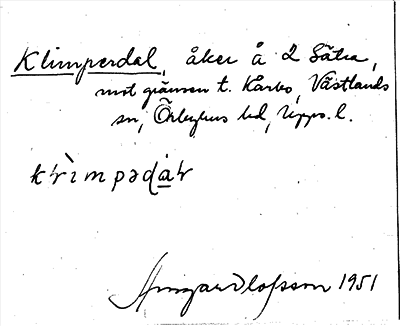 Klimperdal, åker å 2 Sätra,
mot gränsen t. Karbo, Västlands
sn, Örbyhus hd, Upps. l.
Olofsson 1951